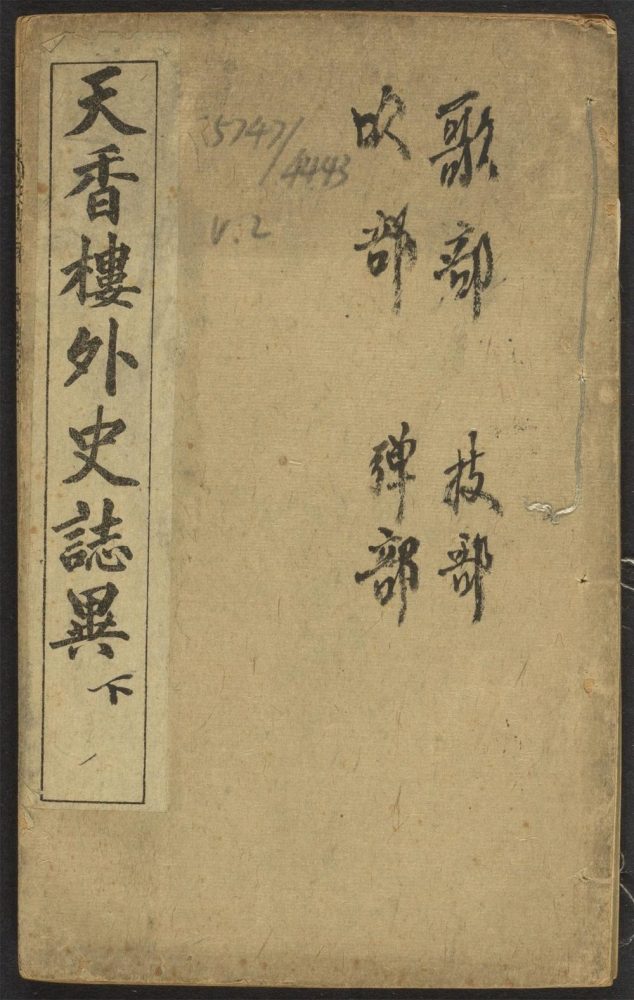 歌部 技部
吹部 弹部
5747/
4443
V.2
天香樓外史誌異 下